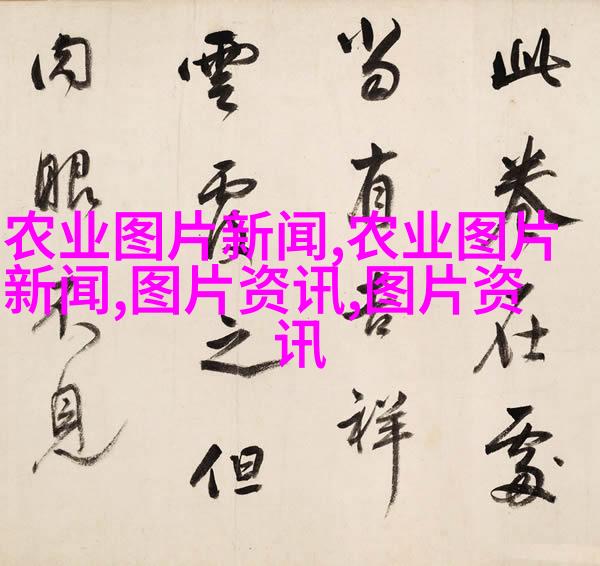 此卷在處
當有吉祥
雲覆之但
肉眼不見
农业图片新闻,农业图片
新闻,图片资讯,图片资
讯